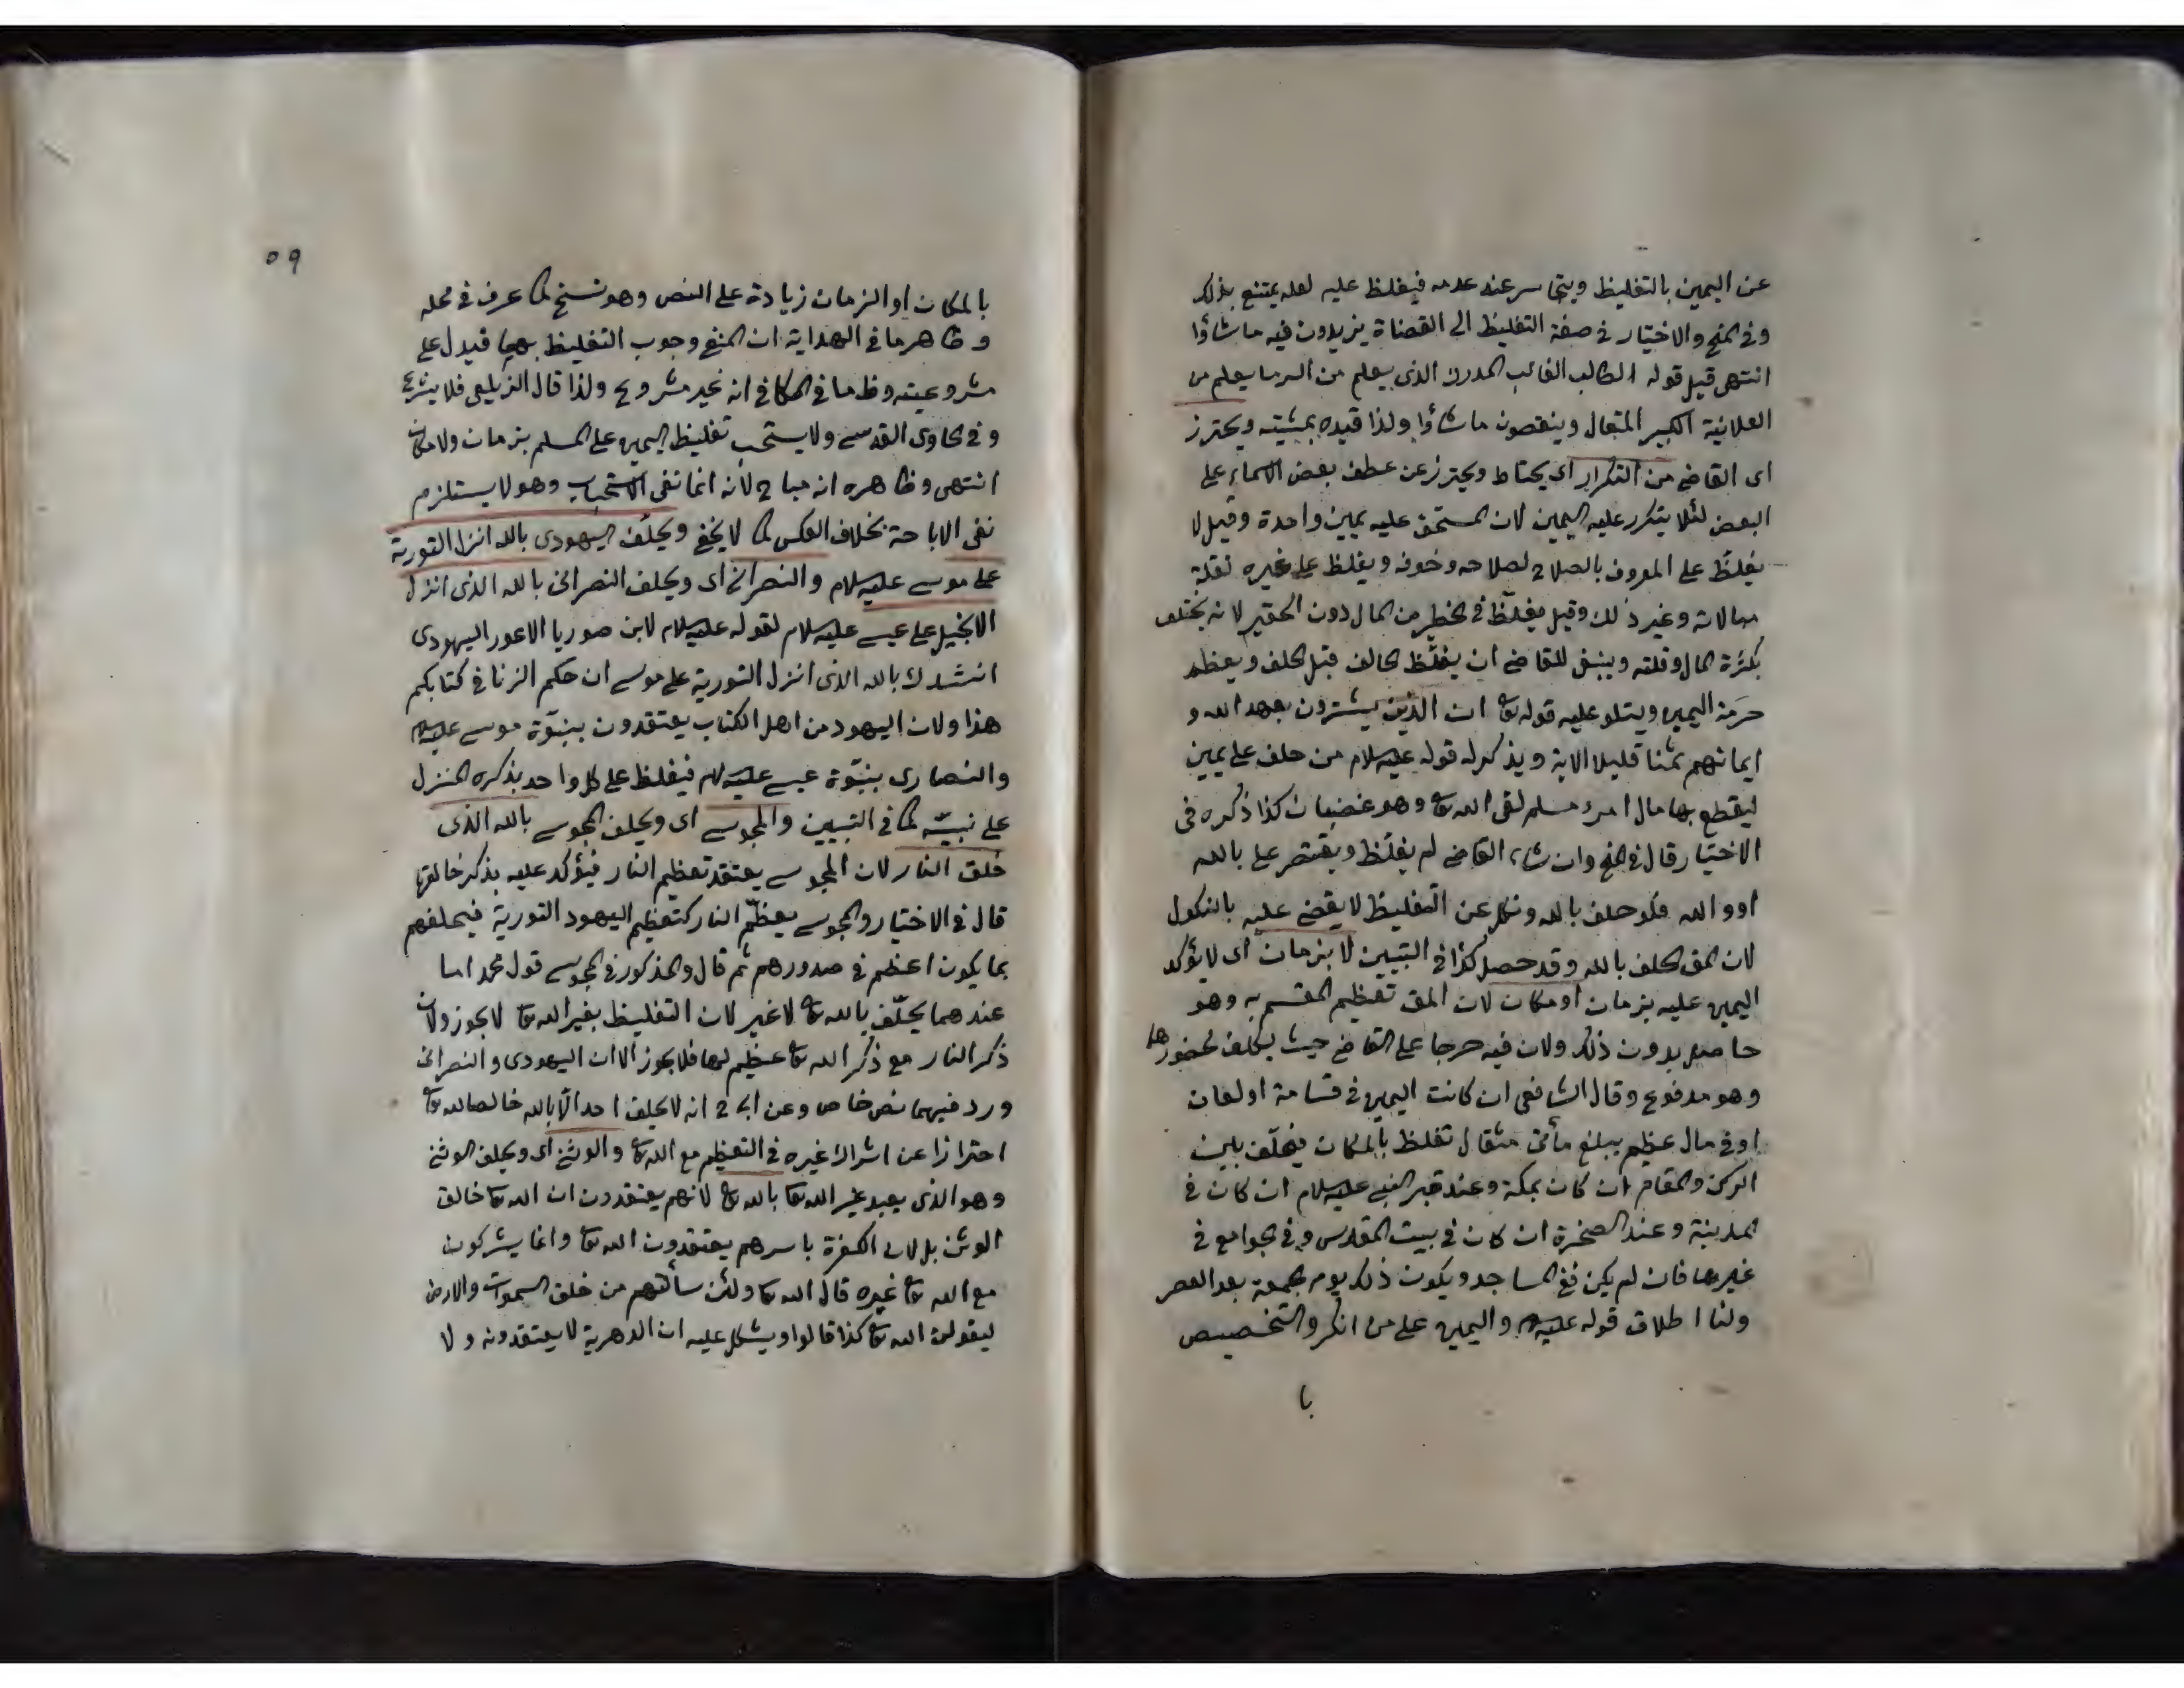 عن اليمين بالتغليظ ويتجاسر عند عدمه فيغلظ عليه لعله يمتنع بذلك
وفى المنح والاختيار فى صفة التغليظ الى القضاة يزيدون فيه ما شاؤا
انتهى قيل قوله الطالب الغالب المدرك الذى يعلم من السر ما يعلم من
العلانية الكبير المتعال وينقصون ما شاؤا ولذا قيده بمشيته ويحترز
اى القاضى من التكرار اى يحتاط ويحترز عن عطف بعض الاسماء على
البعض لئلا يتكرر عليه اليمين لان المستحق عليه يمين واحدة وقيل لا
يغلظ على المعروف بالصلاح لصلاحه وخوفه ويغلظ على غيره لقلة
مبالاته وغير ذلك وقيل يغلظ فى الخطر من المال دون الحقير لانه يختلف
بكثرة المال وقلته وينبغى للقاضى ان يغلظ الحالف قبل الحلف ويعظم
حرمة اليمين ويتلو عليه قوله تعا ان الذين يشترون بعهد الله و
ايمانهم ثمنا قليلا الاية ويذكر له قوله عليه السلام من حلف على يمين
ليقطع بها مال امرء مسلم لقى الله تعا وهو غضبان كذا ذكره فى
الاختيار قال فى المنح وان شاء القاضى لم يغلظ ويقتصر على بالله
او والله فلو حلف بالله ونكل عن التغليظ لا يقضى عليه بالنكول
لان المق الحلف بالله وقد حصل كذا فى التبيين لا بزمان اى لا يؤكد
اليمين عليه بزمان او مكان لان المق تعظيم المقسم به وهو
حاصل بدون ذلك ولان فيه حرجا على القاضى حيث يكلف بحضورها
وهو مدفوع وقال الشافعى ان كانت اليمين فى قسامة او لعان
او فى مال عظيم يبلغ مأتى مثقال تغلظ بالمكان فيحلف بين
الركن والمقام ان كان بمكة وعند قبر النبى عليه السلام ان كان فى
المدينة وعند الصخرة ان كان فى بيت المقدس وفى الجوامع فى
غيرها فان لم يكن ففى المساجد ويكون ذلك يوم الجمعة بعد العصر
ولنا اطلاق قوله عليه السلام واليمين على من انكر والتخصيص
با
٥٩
بالمكان او الزمان زيادة على النص وهو نسخ كما عرف فى محله
وظاهر ما فى الهداية ان المنفى وجوب التغليظ بهما فيدل على
مشروعيته وظ ما فى الكافى انه غير مشروع ولذا قال الزيلعى فلا يشرع
وفى الحاوى القدسى ولا يستحب تغليظ اليمين على المسلم بزمان ولا مكان
انتهى وظاهره انه مباح لانه انما نفى الاستحباب وهو لا يستلزم
نفى الاباحة بخلاف العكس كما لا يخفى ويحلف اليهودى بالله انزل التورية
على موسى عليه السلام والنصرانى اى ويحلف النصرانى بالله الذى انزل
الانجيل على عيسى عليه السلام لقوله عليه السلام لابن صوريا الاعور اليهودى
انشدك بالله الذى انزل التورية على موسى ان حكم الزنا فى كتابكم
هذا ولان اليهود من اهل الكتاب يعتقدون بنبوة موسى عليه السلام
والنصارى بنبوة عيسى عليه السلام فيغلظ على كل واحد بذكره المنزل
على نبيه كما فى التبيين والمجوسى اى ويحلف المجوسى بالله الذى
خلق النار لان المجوسى يعتقد تعظيم النار فيؤكد عليه بذكر خالقها
قال فى الاختيار والمجوسى يعظم النار كتعظيم اليهود التورية فيحلفهم
بما يكون اعظم فى صدورهم ثم قال والمذكور فى المجوسى قول محمد اما
عندهما يحلف بالله تعا لا غير لان التغليظ بغير الله تعا لا يجوز ولان
ذكر النار مع ذكر الله تعا عظيم لها فلا يجوز الا ان اليهودى والنصرانى
ورد فيهما نص خاص وعن ابى ح انه لا يحلف احد الا بالله خالصا لله تعا
احترازا عن اشراك غيره فى التعظيم مع الله تعا والوثنى اى ويحلف الوثنى
وهو الذى يعبد غير الله تعا بالله تعا لانهم يعتقدون ان الله تعا خالق
الوثن بل لان الكفرة باسرهم يعتقدون الله تعا وانما يشركون
مع الله تعا غيره قال الله تعا ولئن سألتهم من خلق السموات والارض
ليقولن الله تعا كذا قالوا ويشكل عليه ان الدهرية لا يعتقدونه ولا